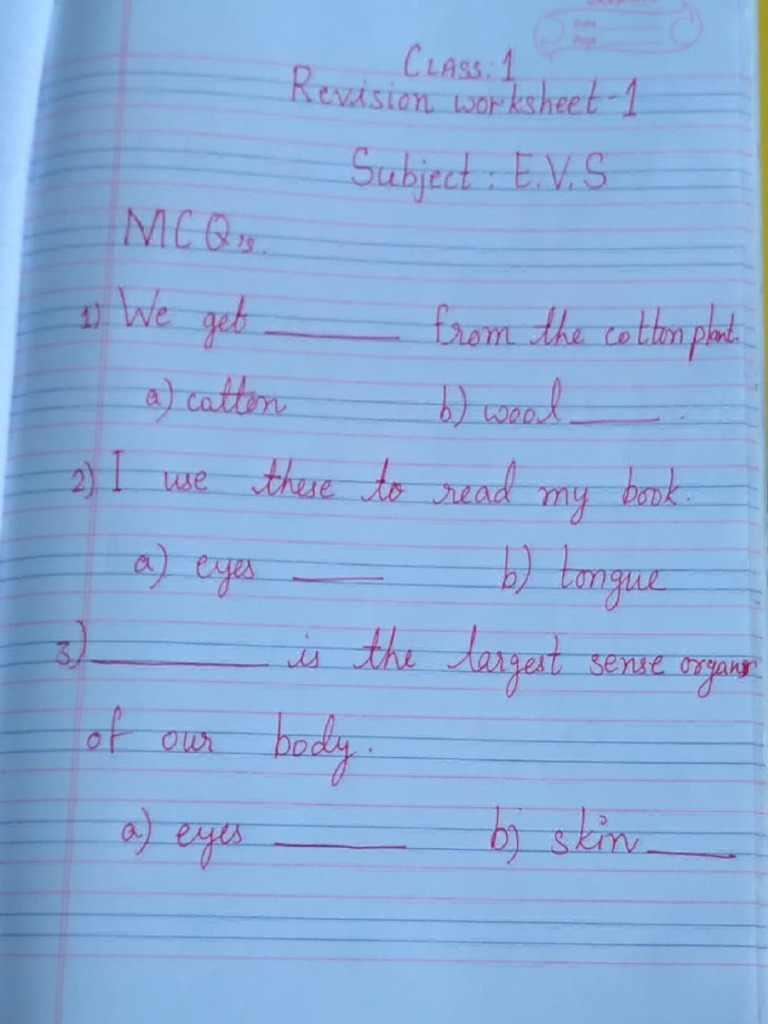 CLASS: 1
Revision worksheet-1
Subject : E.V.S
MCQ's.
1) We get ______ from the cotton plant.
a) catton b) wool ____ .
2) I use these to read my book.
a) eyes ____ b) tongue
3) ________ is the largest sense organ
of our body.
a) eyes ______ b) skin ____